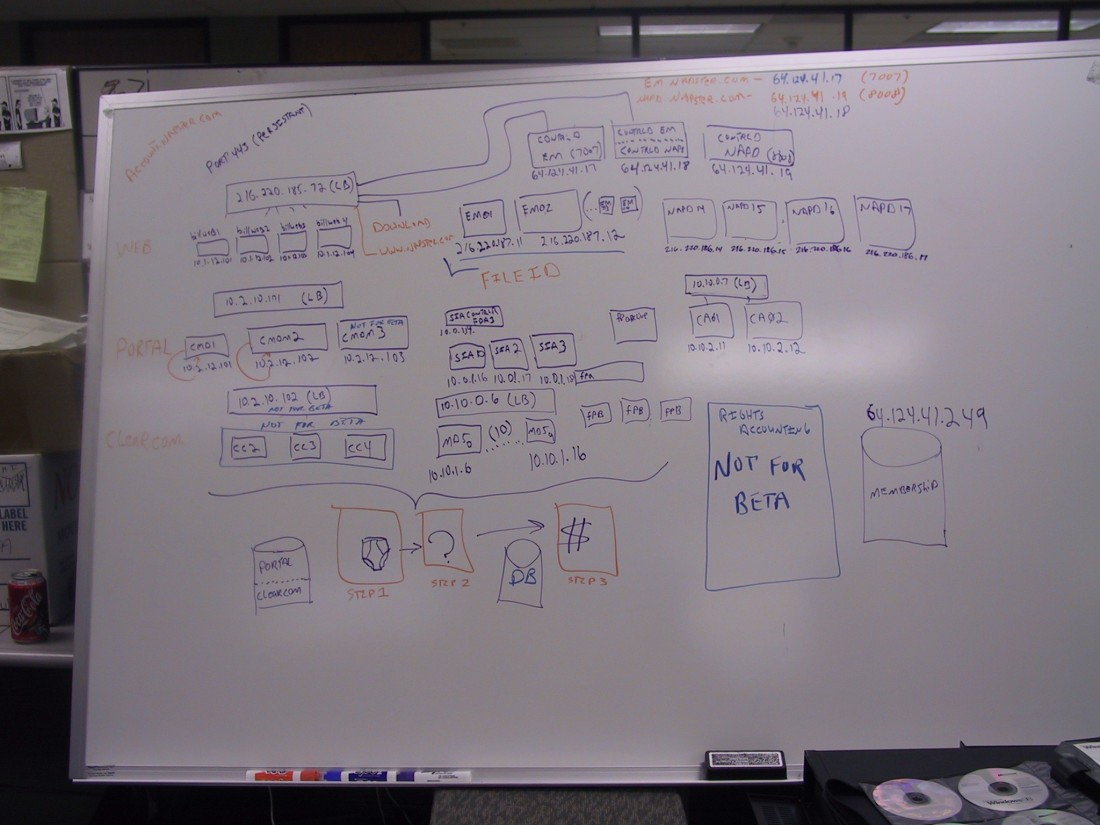 EM.NAPSTER.COM - 64.124.41.17 (7007)
NAPD.NAPSTER.COM - 64.124.41.19 (8008)
64.124.41.18
ACCOUNT.NAPSTER.COM
PORT 443 (PERSISTANT)
216.220.185.72 (LB)
CONTALD
EM (7007)
64.124.41.17
CONTALD EM
CONTALD NAPD
64.124.41.18
CONTALD
NAPD
64.124.41.19
WEB
billweb2
billweb4
10.1.12.101
10.1.12.102
10.1.12.104
DOWNLOAD
WWW.NAPSTER.COM
EM01
EM02
(...
EM
EM
)
216.220.187.11
216.220.187.12
FILE ID
NAPD14
NAPD15
NAPD16
NAPD17
216.220.186.14
216.220.186.15
216.220.186.16
10.2.10.101 (LB)
10.10.0.7 (LB)
PORTAL
CM01
CMOM2
NOT FOR BETA
CMOM3
10.2.12.101
10.2.12.102
10.2.12.103
SIA2
SIA3
10.0.1.16
10.0.1.17
CA01
CA02
10.10.2.11
10.10.2.12
10.2.10.102 (LB)
NOT FOR BETA
10.10.0.6 (LB)
FPB
FPB
FPB
CLEARCOM
NOT FOR BETA
CC2
CC3
CC4
(10)
10.10.1.6
10.10.1.16
RIGHTS
ACCOUNTING
NOT FOR
BETA
64.124.41.249
MEMBERSHIP
PORTAL
CLEARCOM
STEP 1
?
STEP 2
DB
$
STEP 3
Coca-Cola
LABEL
HERE